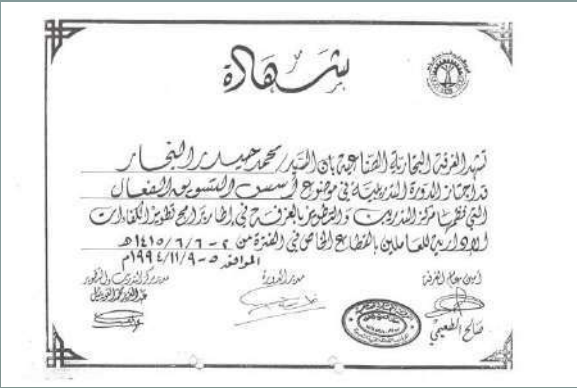 شهادة
تشهد الغرفة التجارية الصناعية بان السيد/ محمد حيدر النجار
قد اجتاز الدورة التدريبية في موضوع أسس التسويق الفعال
التي نظمها مركز التدريب والتطوير بالغرفة في إطار برامج تطوير الكفاءات
الإدارية للعاملين بالقطاع الخاص في الفترة من ٢ - ٦/٦/١٤١٥هـ
الموافق ٥ - ٩/١١/١٩٩٤م
أمين عام الغرفة
مدير الدورة
مدير مركز التدريب والتطوير
صالح الطعيمي